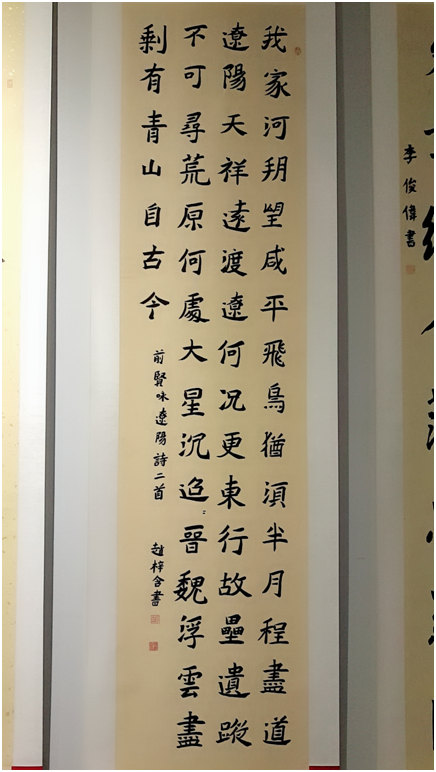 我家河朔望咸平飛鳥猶須半月程盡道
遼陽天祥遠渡遼何況更東行故壘遺蹤
不可尋荒原何處大星沉迢〻晉魏浮雲盡
剩有青山自古今
前賢咏遼陽詩二首
趙梓含書
李俊偉書